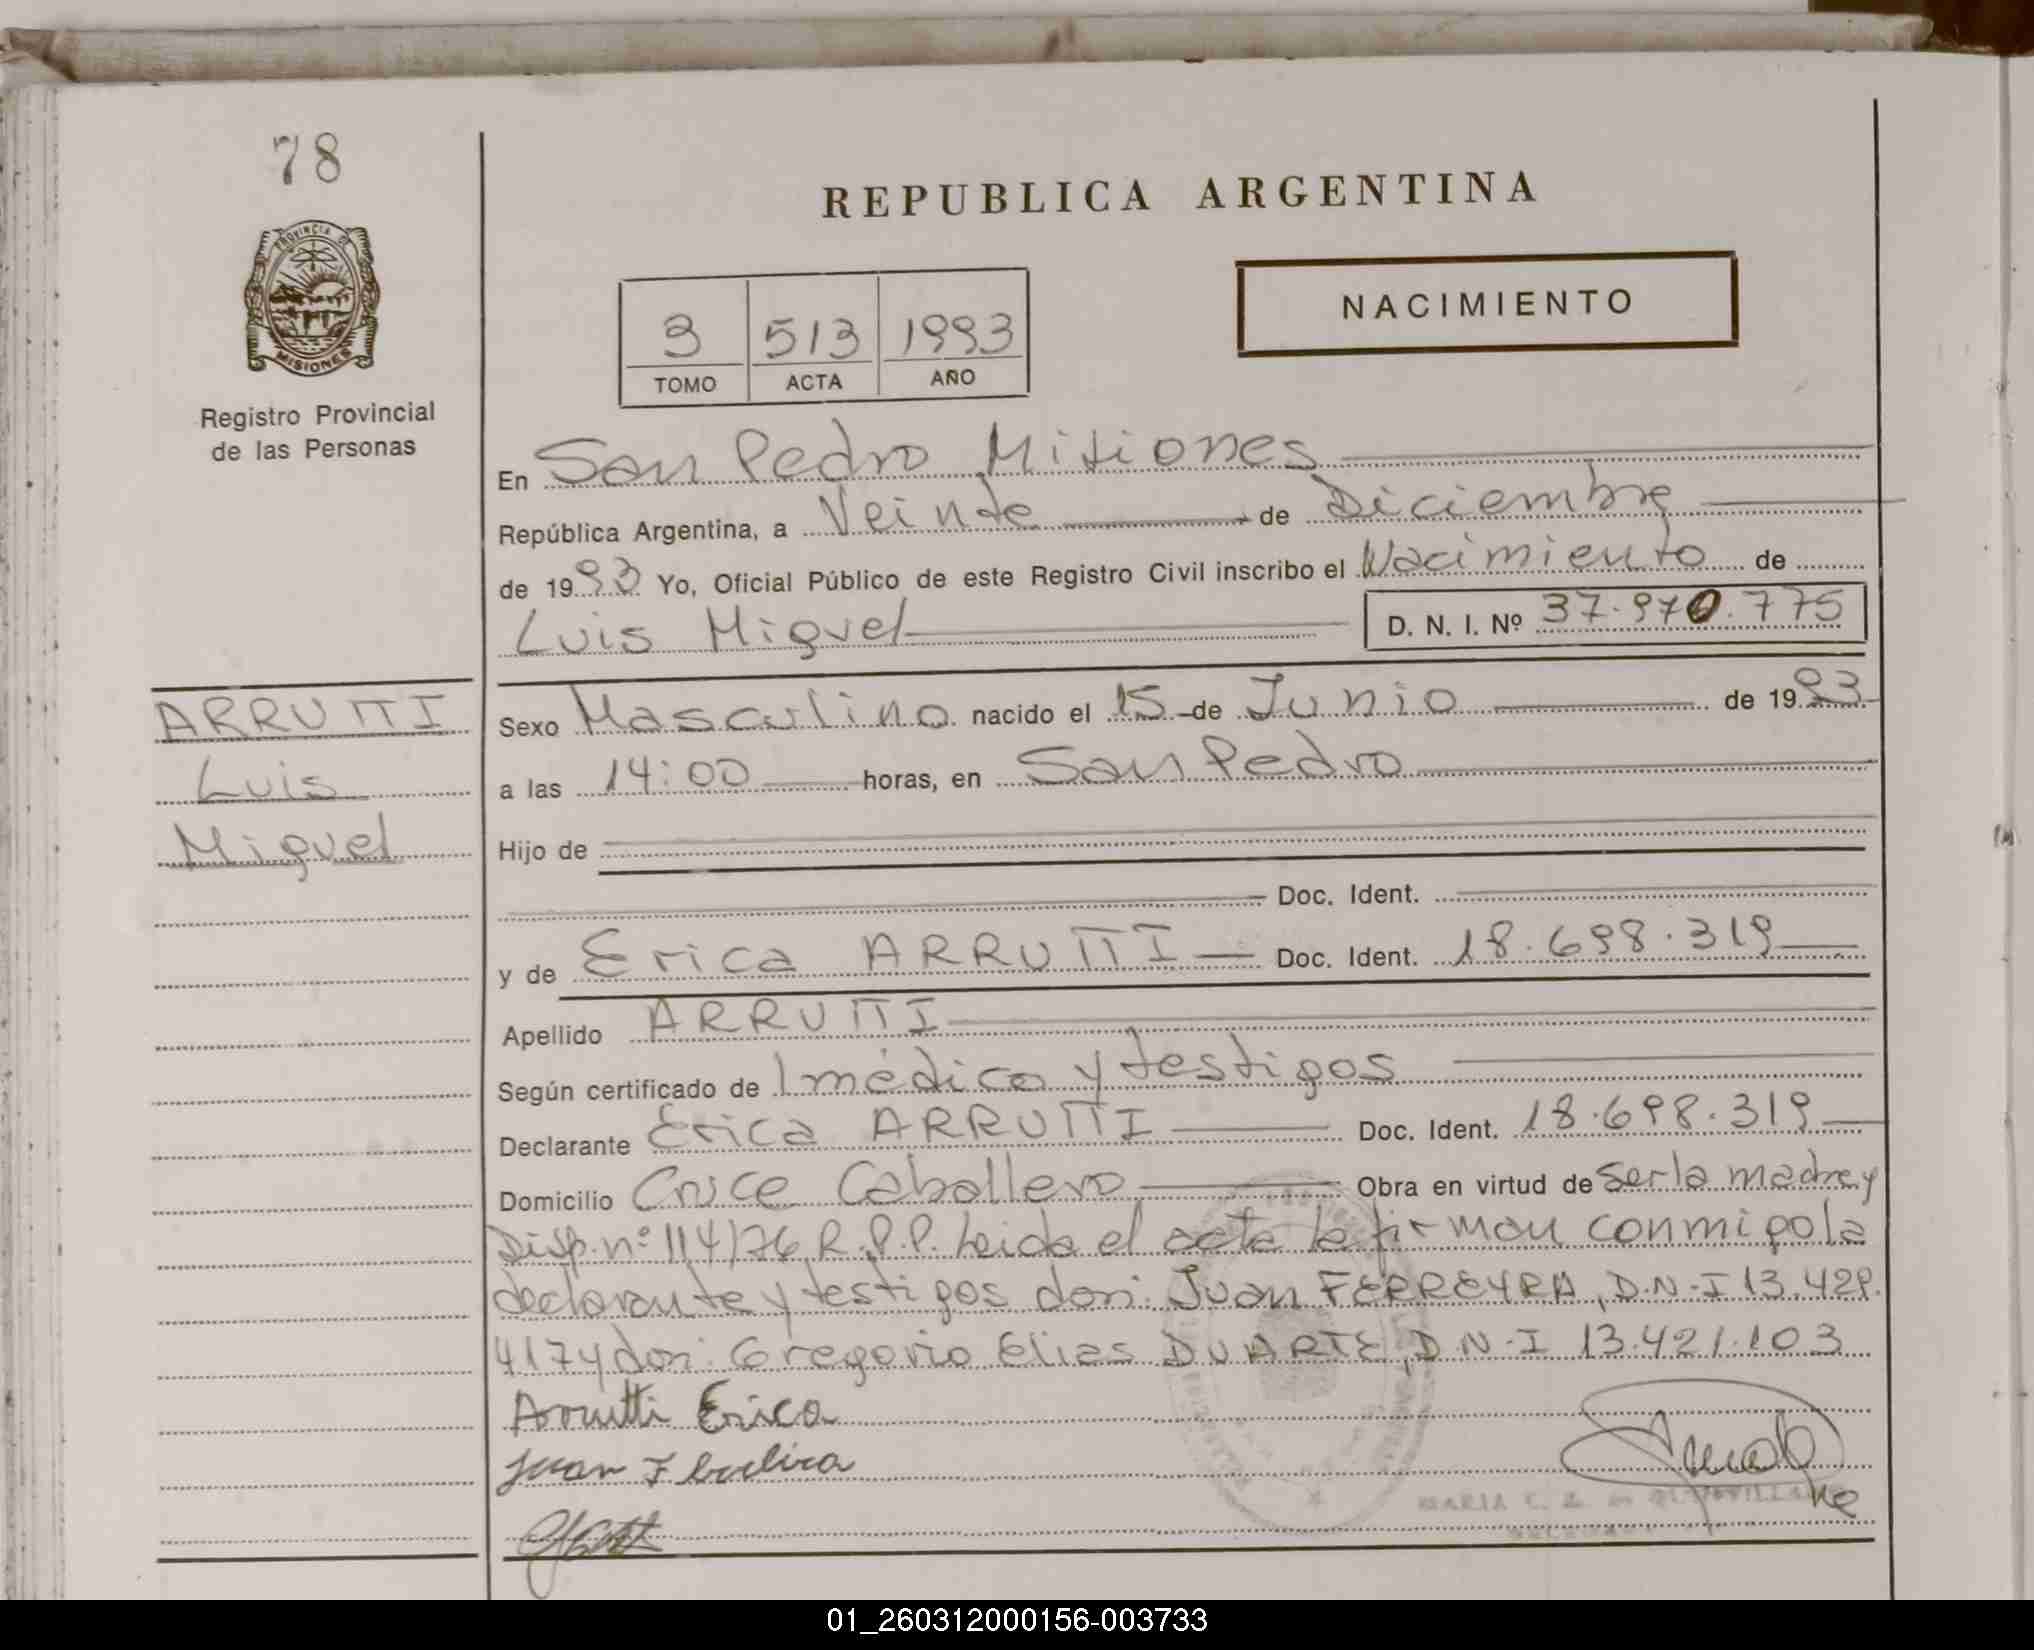 78
REPUBLICA ARGENTINA
PROVINCIA DE
MISIONES
NACIMIENTO
3 513 1993
TOMO ACTA AÑO
Registro Provincial
de las Personas
En San Pedro Misiones
República Argentina, a Veinte de Diciembre
de 1993 Yo, Oficial Público de este Registro Civil inscribo el Nacimiento de
Luis Miguel D. N. I. Nº 37.970.775
ARRUTTI
Luis
Miguel
Sexo Masculino nacido el 15 de Junio de 1993
a las 14:00 horas, en San Pedro
Hijo de
Doc. Ident.
y de Erica ARRUTTI Doc. Ident. 18.698.319
Apellido ARRUTTI
Según certificado de 1 médico y testigos
Declarante Erica ARRUTTI Doc. Ident. 18.698.319
Domicilio Cruce Caballero Obra en virtud de ser la madre y
Disp. nº 114/76 R.P.P. Leida el acta la firman conmigo la
declarante y testigos don: Juan FERREYRA, D.N.I 13.429.
417 y don: Gregorio Elias DUARTE, D.N.I 13.421.103
Arrutti Erica
Juan
MARIA
01_260312000156-003733